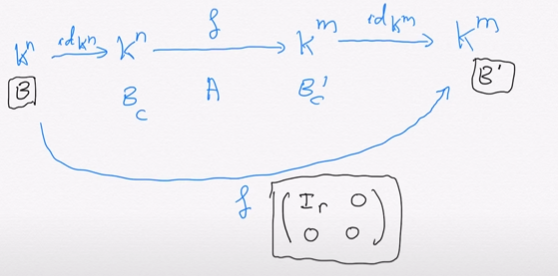 Kⁿ id_Kⁿ Kⁿ f Kᵐ id_Kᵐ Kᵐ
B B_c A B'_c B'
f ( I_r 0
0 0 )